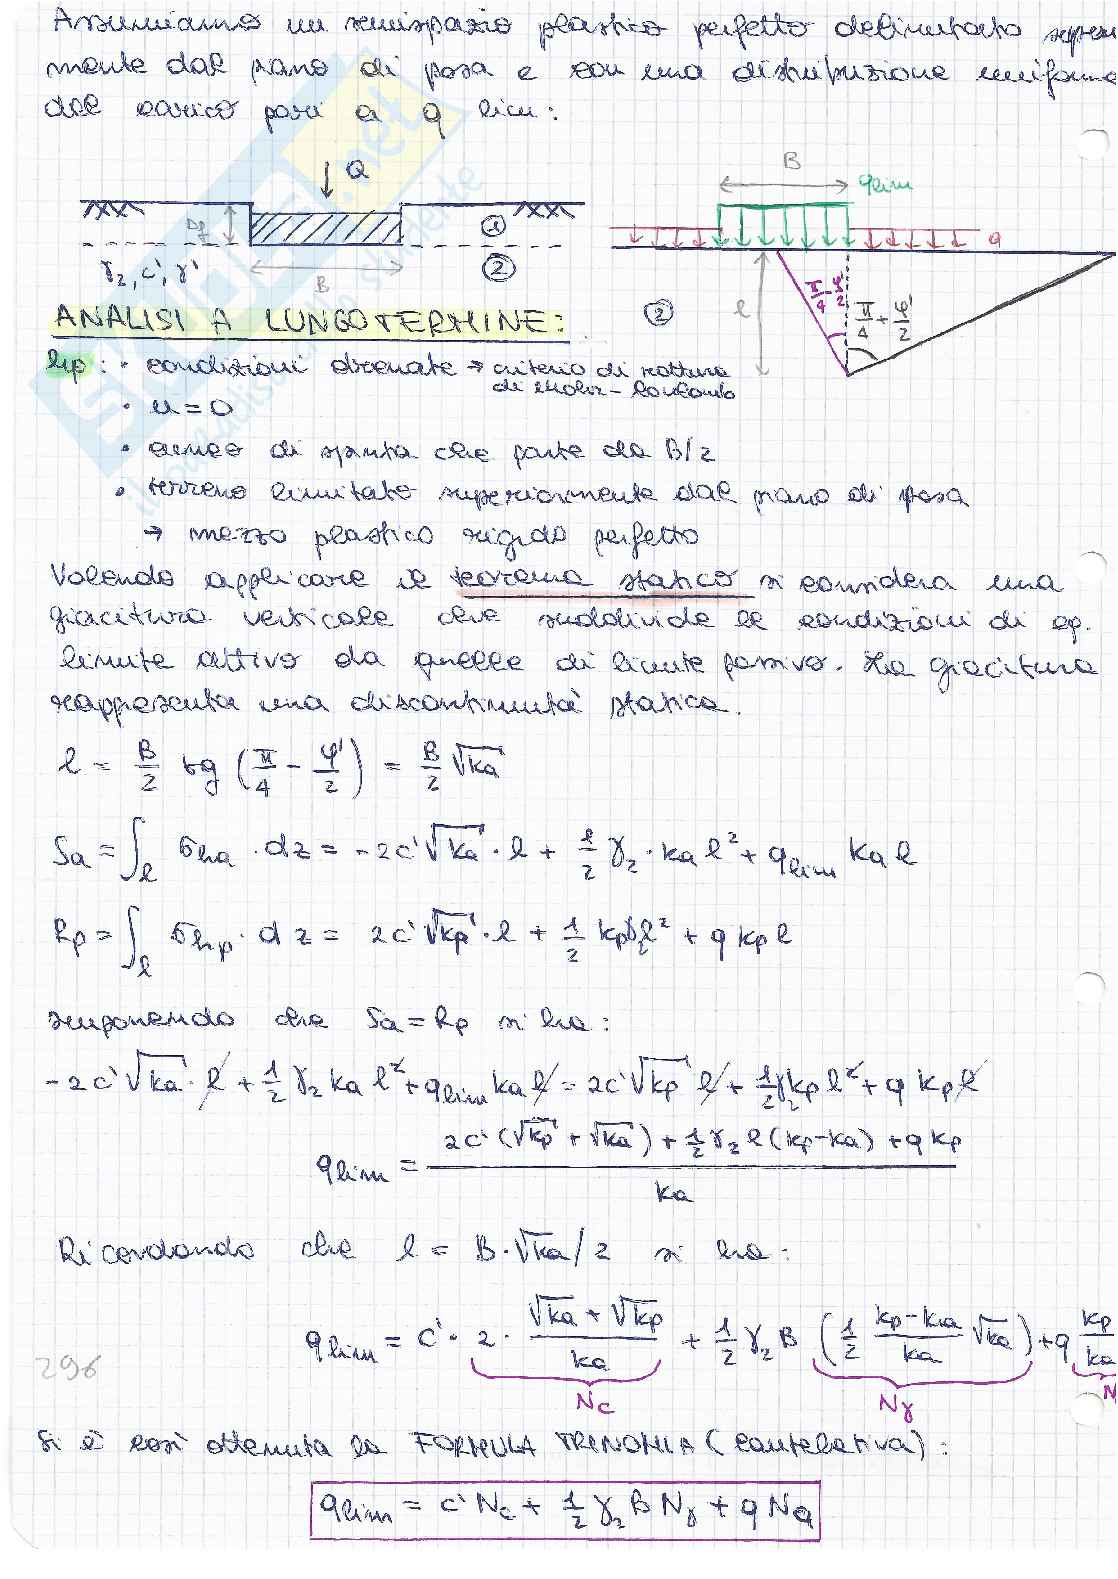 Assumiamo un semispazio plastico perfetto delimitato
mente dal piano di posa e con una distribuzione uniforme
del carico pari a q lim:
Q
Df
①
②
γ₂, c', γ'
B
B
qlim
q
l
②
π/4 - φ'/2
π/4 + φ'/2
ANALISI A LUNGO TERMINE:
hp: • condizioni drenate → criterio di rottura
di Mohr-Coulomb
• u = 0
• cuneo di spinta che parte da B/2
• terreno limitato superiormente dal piano di posa
→ mezzo plastico rigido perfetto
Volendo applicare il teorema statico si considera una
giacitura verticale che suddivide le condizioni di eq.
limite attivo da quelle di limite passivo. La giacitura
rappresenta una discontinuità statica.
l = B/2 tg (π/4 - φ'/2) = B/2 √ka
Sa = ∫l σha · dz = -2c'√ka · l + 1/2 γ₂ · ka l² + qlim ka l
Rp = ∫l σhp · dz = 2c'√kp · l + 1/2 kp γ₂ l² + q kp l
supponendo che Sa = Rp si ha:
-2c'√ka · l + 1/2 γ₂ ka l² + qlim ka l = 2c'√kp l + 1/2 γ₂ kp l² + q kp l
qlim = (2c'(√kp + √ka) + 1/2 γ₂ l (kp-ka) + q kp) / ka
Ricordando che l = B·√ka/2 si ha:
qlim = c' · 2 · (√ka + √kp)/ka + 1/2 γ₂ B (1/2 (kp-ka)/ka √ka) + q kp/ka
Nc Nγ N
296
Si è così ottenuta la FORMULA TRINOMIA (cautelativa):
qlim = c' Nc + 1/2 γ₂ B Nγ + q Nq